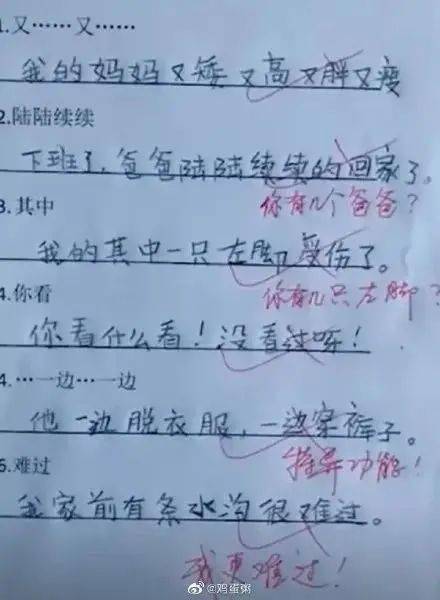 1.又……又……
我的妈妈又矮又高又胖又瘦
2.陆陆续续
下班了，爸爸陆陆续续的回家了。
你有几个爸爸？
3.其中
我的其中一只左脚受伤了。
你有几只左脚？
4.你看
你看什么看！没看过呀！
4.…一边…一边
他一边脱衣服，一边穿裤子。
特异功能！
5.难过
我家前有条水沟很难过。
我更难过！
@鸡蛋粥